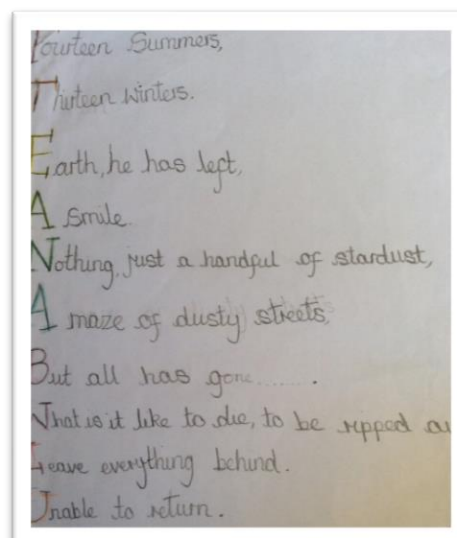 Fourteen Summers,
Thirteen winters.
Earth, he has left,
A smile.
Nothing, just a handful of stardust,
A maze of dusty streets,
But all has gone.......
What is it like to die, to be ripped
Leave everything behind.
Unable to return.